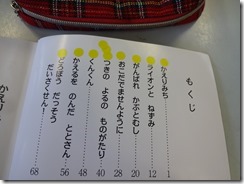 もくじ
かえりみち 1
ライオンと ねずみ 12
がんばれ かぶとむし 20
おこだでませんように 28
つきの よるの ものがたり 40
くんくん 48
かえるを のんだ ととさん 56
どろぼう だっそう
だいさくせん! 68